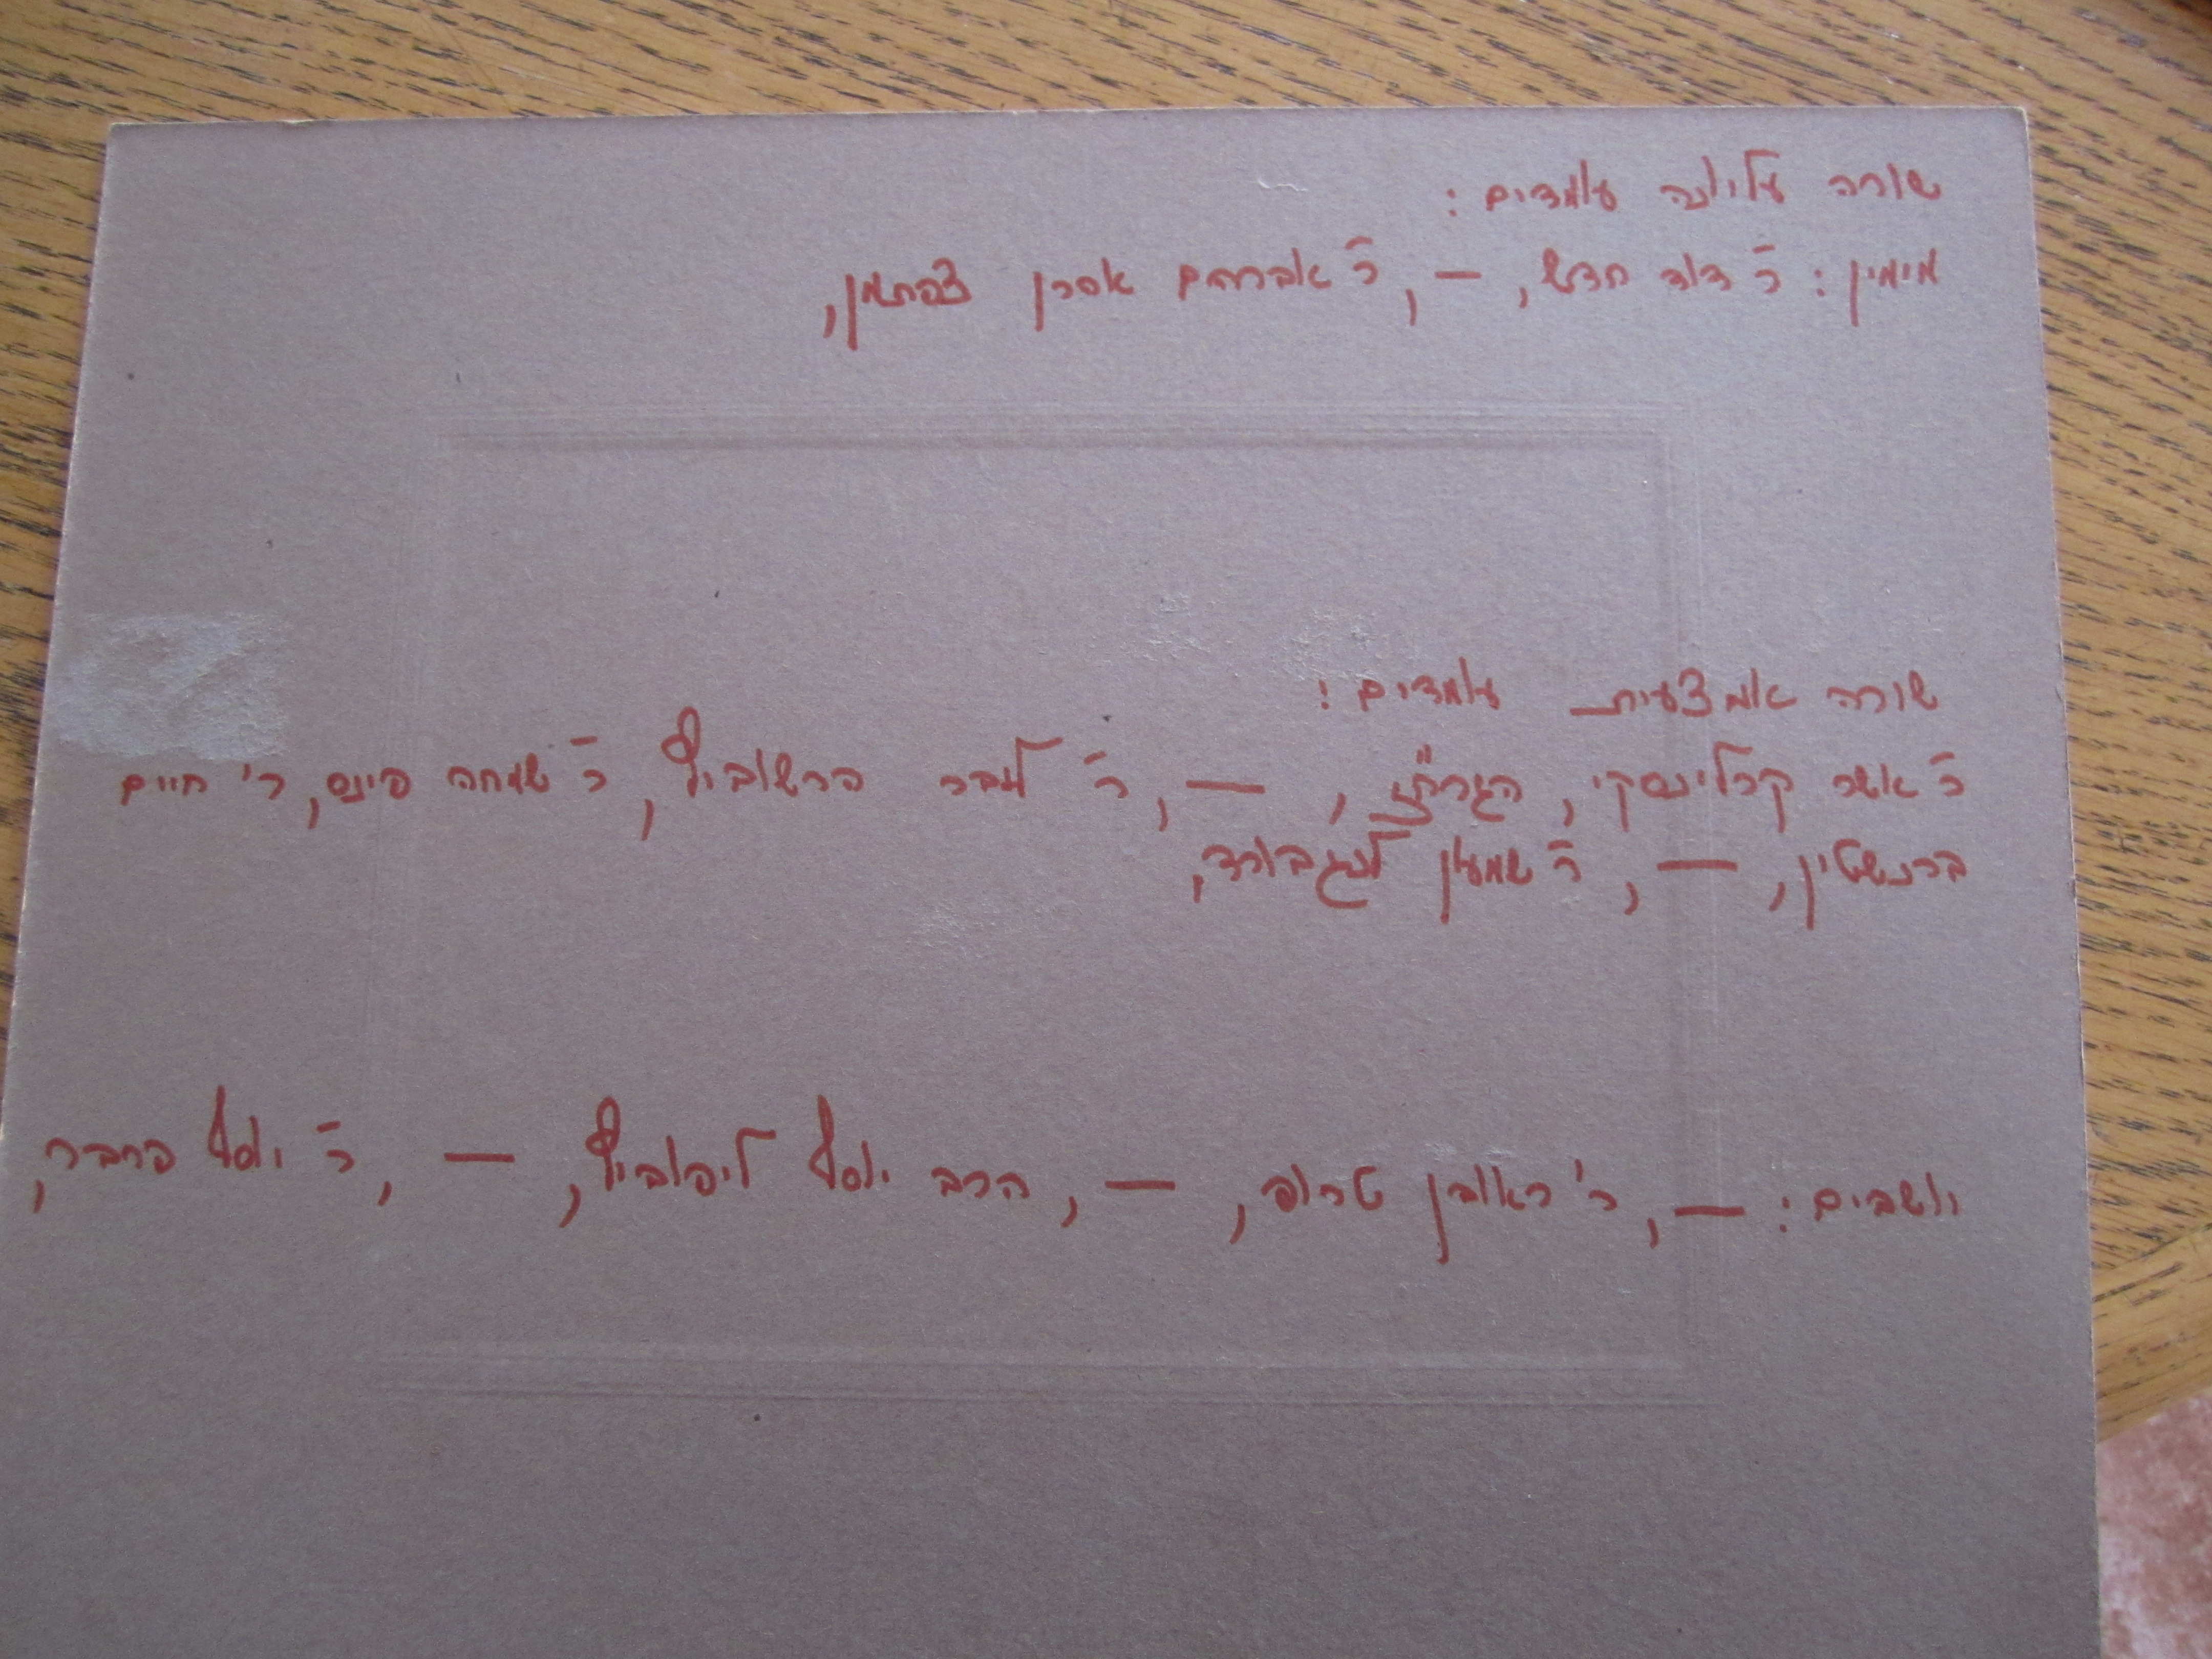 שורה עליונה עומדים:
מימין: ר' דוד חדש, –, ר' אברהם אסרן צפתמן,
שורה אמצעית עומדים:
ר' אשר קרלינסקי, –, ר' לייבר פרשוביץ, ר' שמחה פינס, ר' חיים
ברנשטין, –, ר' שמעון לנגבורד,
יושבים: –, ר' ראובן טרופ, –, הרב יוסף ליפוביץ, –, ר' יוסף פרבר,